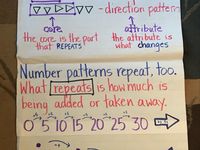 - direction pattern
core
attribute
the core is the part
the attribute is
that REPEATS
what changes
Number patterns repeat, too.
What repeats is how much is
being added or taken away.
+5 +5 +5 +5 +5 +5
0 5 10 15 20 25 30